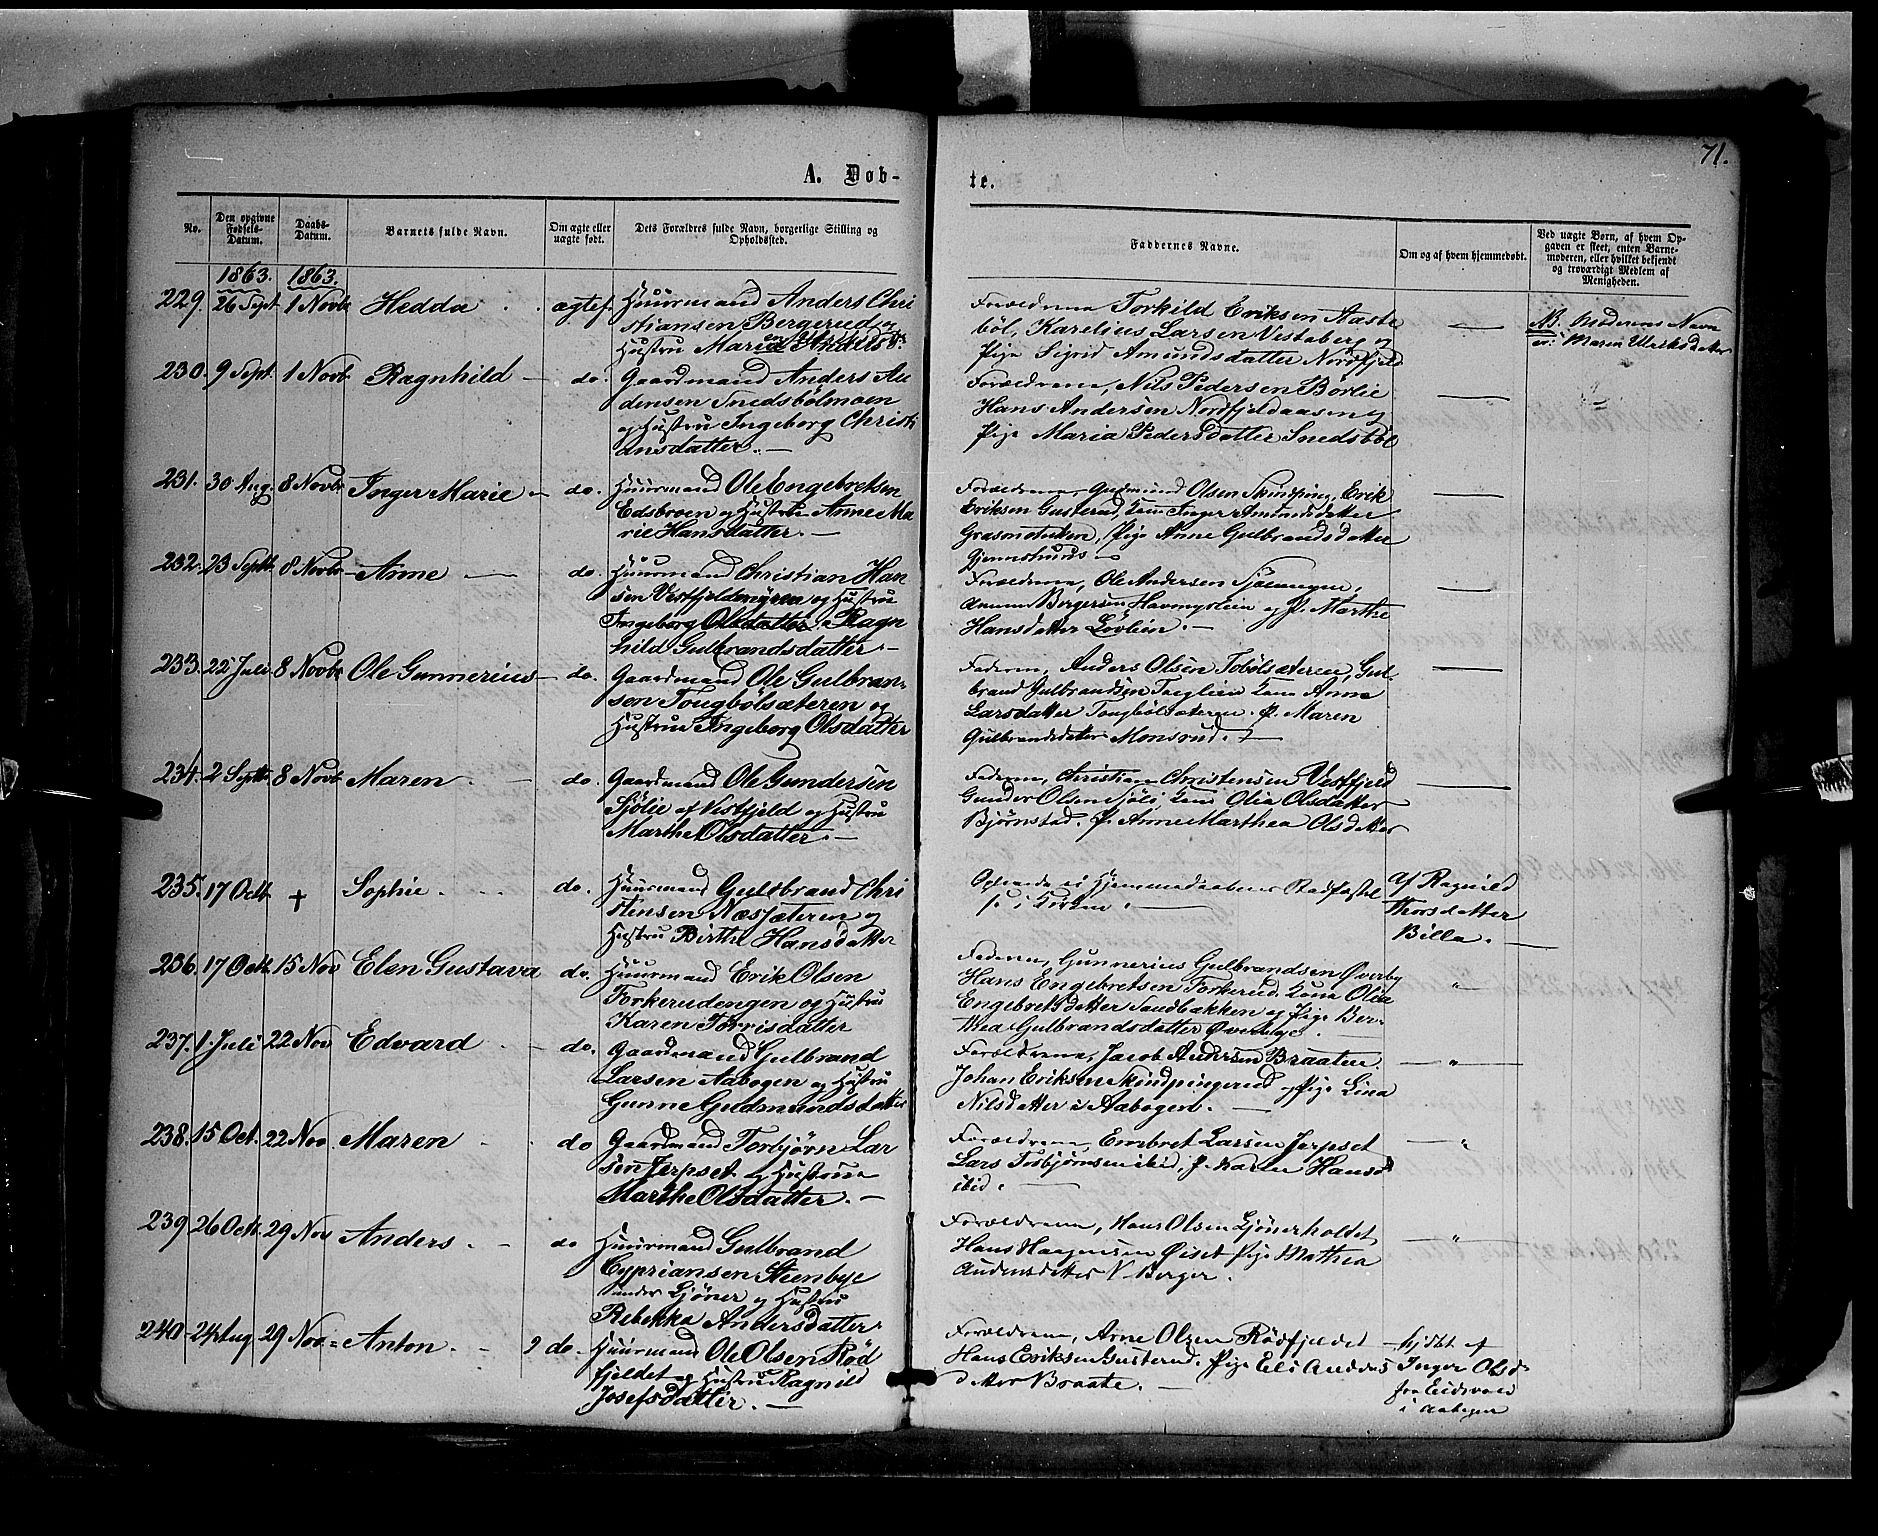 71.
A. Døb-
te.
No.
Den opgivne Fødsels-Datum.
Daabs-Datum.
Barnets fulde Navn.
Om ægte eller uægte født.
Dets Forældres fulde Navn, borgerlige Stilling og Opholdsted.
Faddernes Navne.
Om og af hvem hjemmedøbt.
Ved uægte Børn, af hvem Op-
gaven er skeet, enten Barne-
moderen, eller hvilket bekjendt
og troværdigt Medlem af
Menigheden.
1863. 1863.
229. 26 Sept 1 Novbr Hedda ægtef. Huusmand Anders Chri
stiansen Bergerud og
Hustru Maria Anders Dr.
Forældrene Torkild Eriksen Aaste
böl, Karelius Larsen Vestaberg og
Pige Sigrid Amundsdatter Nordfjeld
NB. Moderens Navn
er: Maren
230. 9 Sept. 1 Novb. Ragnhild do. Gaardmand Anders Au
densen Snedsbölmoen
og Hustru Ingeborg Christi
ansdatter.
Forældrene, Nils Pedersen Börlie
Hans Andersen Nordfjeldaasen og
Pige Maria Pedersdatter Snedsböl
231. 30 Aug. 8 Novbr Inger Marie do. Huusmand Ole Engebretsen
Edsbroen og Hustru Anne Ma
rie Hansdatter.
Forældrene, Gudmund Olsen Skindping, Erik
Eriksen Gusterud, Kone Inger Amundsdatter
Pige Anne Gulbrandsdatter
232. 23 Septb. 8 Novbr Anne do. Huusmand Christian Han
sen Vestfjeldmyren og Hustru
Ingeborg Olsdatter Ragn
hild Gulbrandsdatter.
Forældrene, Ole Andersen
Bergersen og P. Marthe
Hansdatter Lövlien.
233. 22 Juli 8 Novbr Ole Gunnerius do. Gaardmand Ole Gulbran-
sen Tougbölsæteren og
Hustru Ingeborg Olsdatter
Faderen, Anders Olsen Tobölsæteren, Gul-
brand Gulbrandsen Kone Anne
Larsdatter Tougbölsæteren. P. Maren
Gulbrandsdatter Monsrud.
234. 2 Septb. 8 Novb. Maren do. Gaardmand Ole Gundersen
Sjölie af Vestfjeld og Hustru
Marthe Olsdatter.
Faderen, Christian Christensen Vestfjeld
Gunder Olsen Sjöli, Kone Olia Olsdatter
Björnstad. P. Anne Marthea Olsdatter
235. 17 Octb. + Sophie do. Huusmand Gulbrand Chri
stensen Næssæteren og
Hustru Birthe Hansdatter
Hjemmedaabens Stadfæstel
se i Kirken.
Af Ragnild
Thorsdatter
Billa.
236. 17 Octb. 15 Nov Elen Gustava do. Huusmand Erik Olsen
Torkerudengen og Hustru
Karen Torrisdatter
Faderen, Gunnerius Gulbrandsen Överby
Hans Engebretsen Torkerud. Kone Olia
Engebretsdatter Sandbakken og Pige Ber-
thea Gulbrandsdatter Överbye.
237. 1. Juli 22 Nov Edvard do. Gaardmand Gulbrand
Larsen Aabogen og Hustru
Gunne Guldmundsdatter
Forældrene, Jacob Andersen Braaten.
Johan Eriksen Skindpingerud og Pige Lina
Nilsdatter i Aabogen.
238. 15 Oct. 22 Nov. Maren do Gaardmand Torbjörn Lar
sen Jerpset og Hustrue
Marthe Olsdatter.
Forældrene, Embret Larsen Jerpset
Lars Torbjörnsen ibid, P. Karen Hansd
ibid.
239 26 Octb. 29 Nov Anders do Huusmand Gulbrand
Cypriansen Steenbye
under Ljöner og Hustru
Rebekka Andersdatter
Forældrene, Hans Olsen Ljönerholdet
Hans Haagensen Öiset Pige Mathea
Audensdatter N. Berger.
240. 24 Aug. 29 Nov Anton do. Huusmand Ole Olsen Röd
fjeldet og Hustru Ragnild
Josefsdatter.
Forældrene, Arne Olsen Rödfjeldet
Hans Eriksen Gusterud. Pige Eli Anders
datter Braate.
Hjdbt af
Inger Olsd
fra Eidsvold
i Aabogen